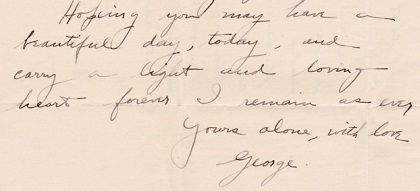 Hoping you may have a
beautiful day, today, and
carry a light and loving
heart forever I remain as ever
Yours alone, with love
George.